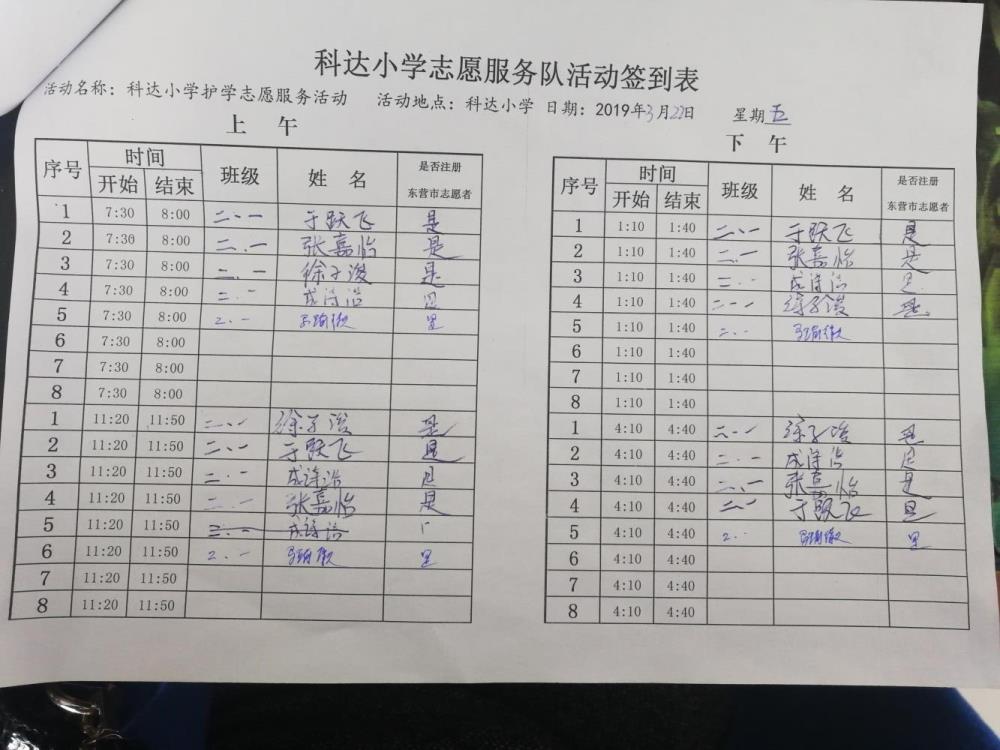 科达小学志愿服务队活动签到表
活动名称：科达小学护学志愿服务活动 活动地点：科达小学 日期：2019年3月22日 星期五
上 午
序号 时间 班级 姓 名 是否注册东营市志愿者
开始 结束
1 7:30 8:00 二、一 于跃飞 是
2 7:30 8:00 二、一 张嘉怡 是
3 7:30 8:00 二、一 徐子浚 是
4 7:30 8:00 二、一 成诗浩 是
5 7:30 8:00 2.一 是
6 7:30 8:00
7 7:30 8:00
8 7:30 8:00
1 11:20 11:50 二、一 徐子浚 是
2 11:20 11:50 二、一 于跃飞 是
3 11:20 11:50 二、一 成诗浩 是
4 11:20 11:50 二、一 张嘉怡 是
5 11:20 11:50 二、一 成诗浩
6 11:20 11:50 2.一 是
7 11:20 11:50
8 11:20 11:50
下 午
序号 时间 班级 姓 名 是否注册东营市志愿者
开始 结束
1 1:10 1:40 二、一 于跃飞 是
2 1:10 1:40 二、一 张嘉怡 是
3 1:10 1:40 二、一 成诗浩 是
4 1:10 1:40 二、一 徐子浚 是
5 1:10 1:40 二、一
6 1:10 1:40
7 1:10 1:40
8 1:10 1:40
1 4:10 4:40 二、一 徐子浚 是
2 4:10 4:40 二、一 成诗浩 是
3 4:10 4:40 二、一 张嘉怡 是
4 4:10 4:40 二、一 于跃飞 是
5 4:10 4:40 2.一 是
6 4:10 4:40
7 4:10 4:40
8 4:10 4:40